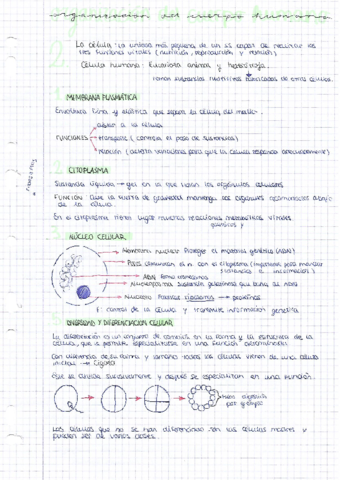 organización del cuerpo humano
La célula: la unidad más pequeña de un ss capaz de realizar las
tres funciones vitales (nutrición, reproducción y relación)
Célula humana: Eucariota animal y heterótrofa.
toman sustancias nutritivas fabricadas de otras células.
1 MEMBRANA PLASMÁTICA
Envoltura fina y elástica que separa la célula del medio.
aislar a la célula
FUNCIONES transporte (controla el paso de sustancias)
relación (detecta variaciones para que la célula responda adecuadamente)
2 CITOPLASMA
Sustancia líquida → gel en la que flotan los orgánulos celulares
FUNCIÓN
de la célula.
En el citoplasma tienen lugar muchas reacciones metabólicas vitales
3 NÚCLEO CELULAR
Membrana nuclear Protege el material genético (ADN)
Poros comunican el n con el citoplasma
sustancias e información)
ADN forma
sustancia gelatinosa que
Nucleolo Produce ribosomas → proteínas
El control de la célula y transmite información genética
5 DIVERSIDAD Y DIFERENCIACIÓN CELULAR
La diferenciación es un conjunto de cambios en la forma y la estructura de la
célula, que le permite especializarse en una función determinada.
Con independencia de su forma y tamaño todas las células vienen de una célula
inicial → Cigoto
Que se divide sucesivamente y después se especializan en una función.
por grupos
Las células que no se han diferenciado son las células madres y
pueden ser de varias clases.